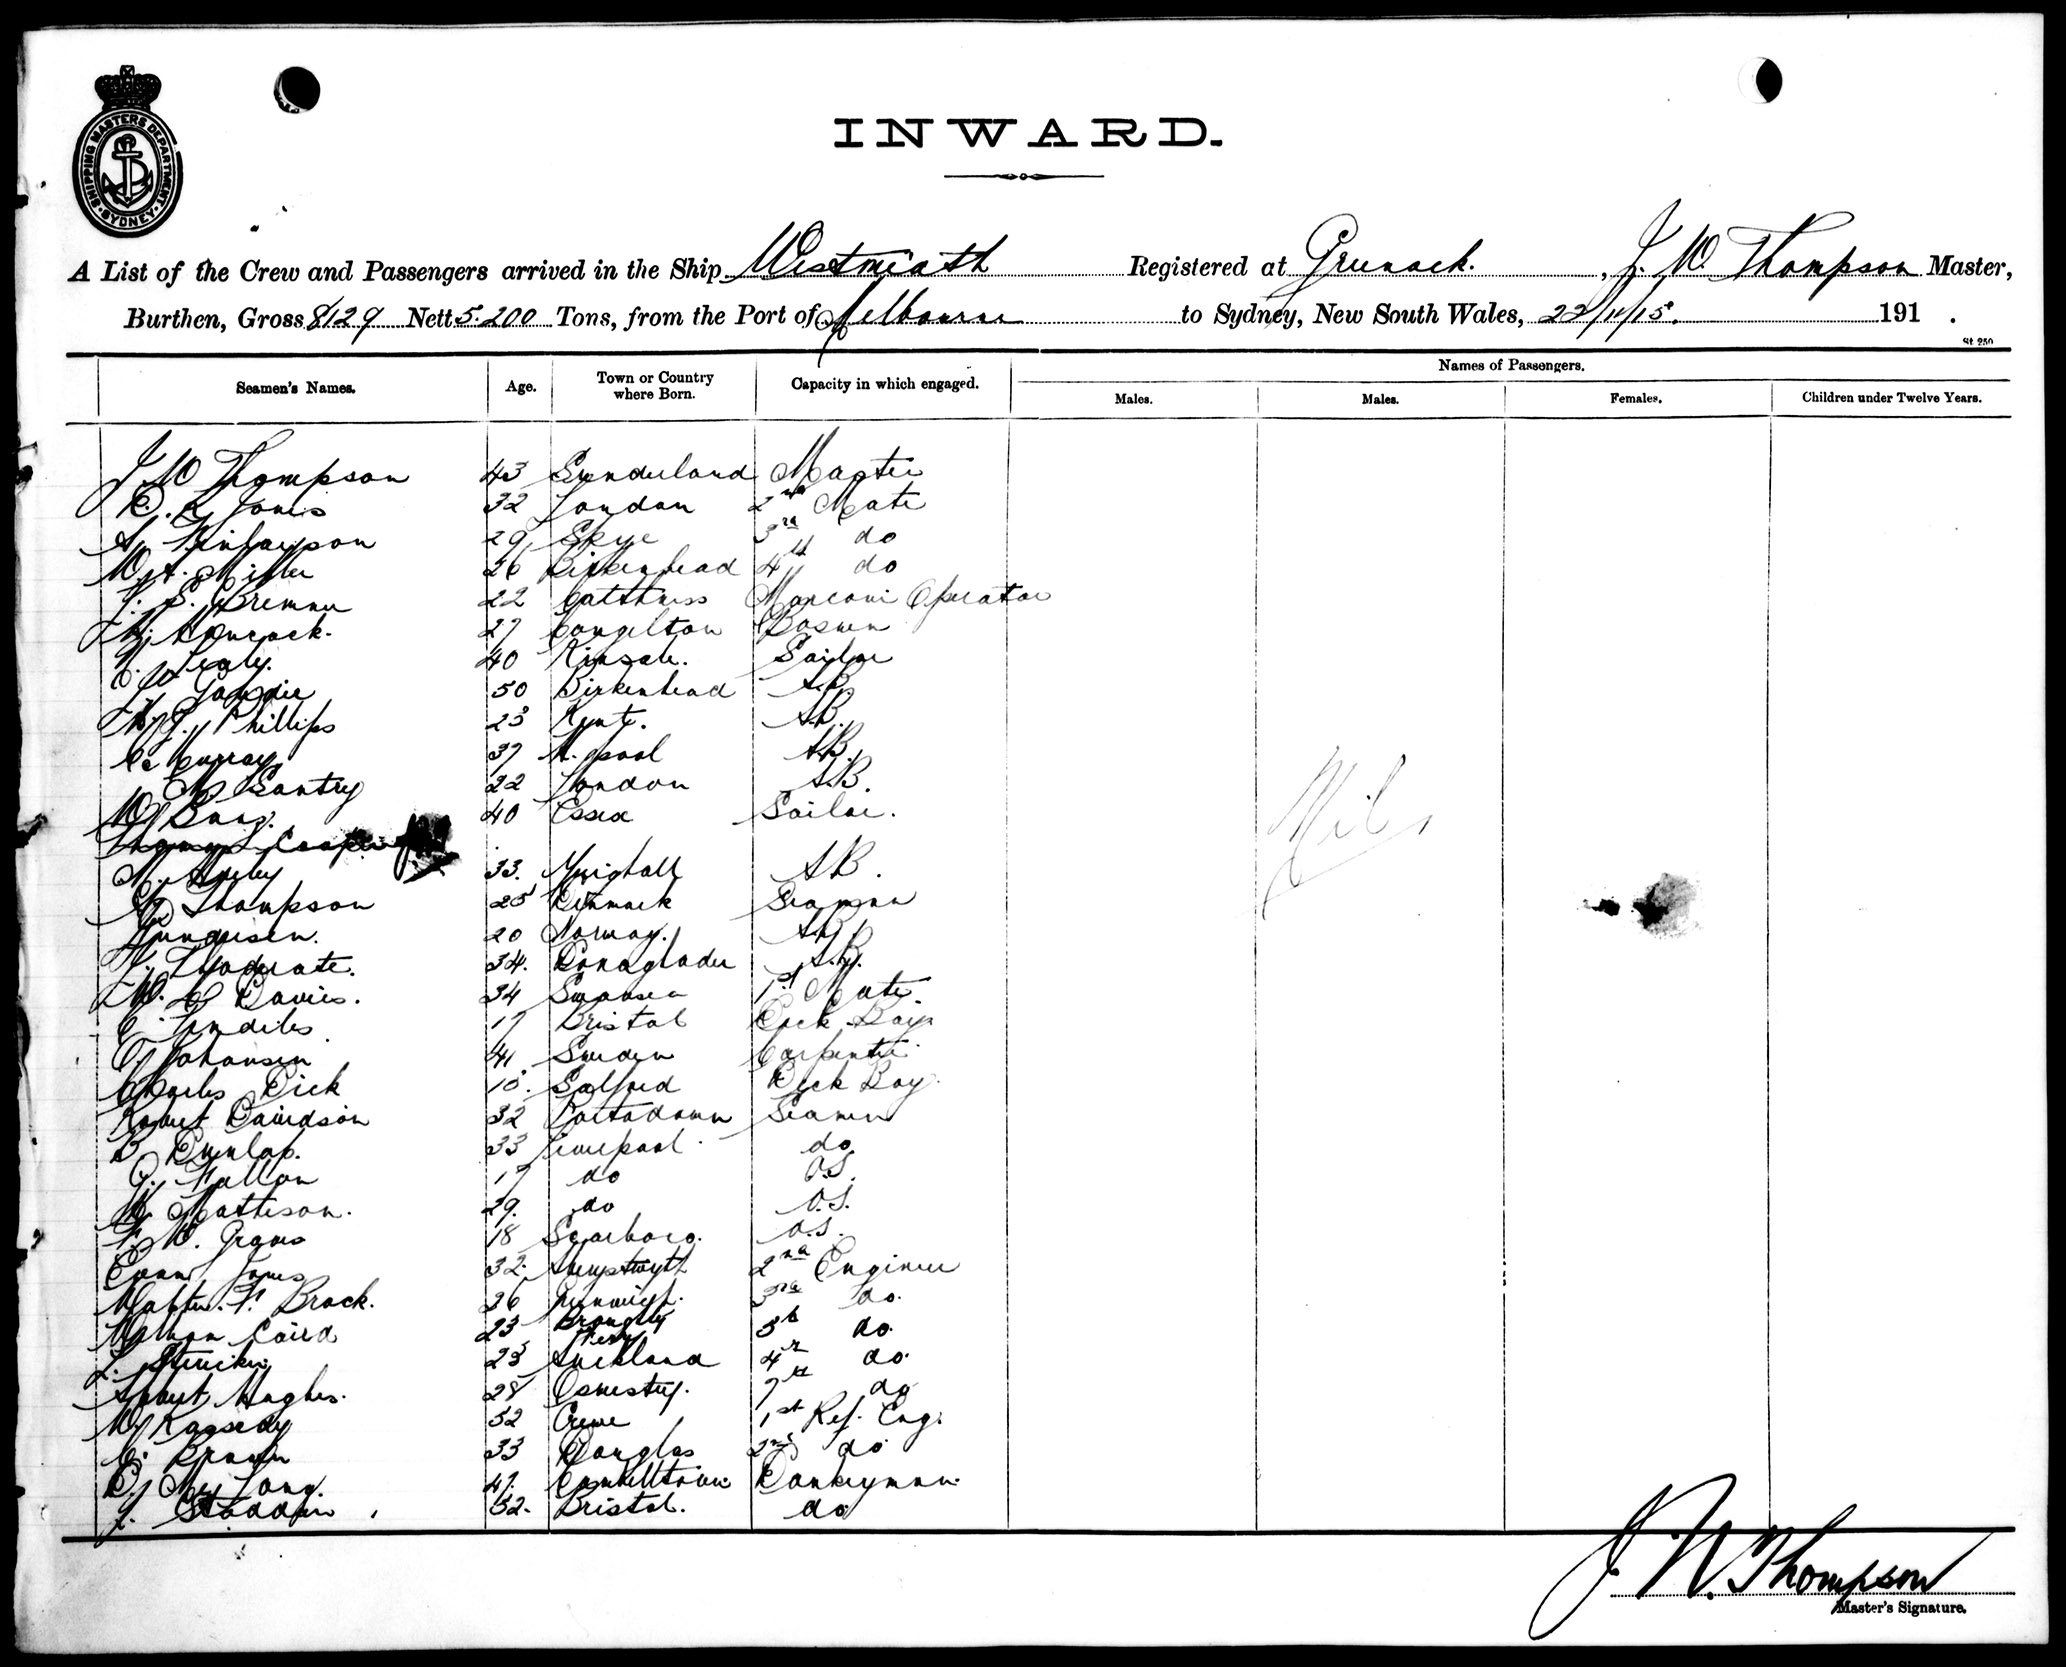 INWARD.
SHIPPING MASTERS DEPARTMENT SYDNEY
A List of the Crew and Passengers arrived in the Ship Westmeath Registered at Greenock. J. W. Thompson Master,
Burthen, Gross 8129 Nett 5.200 Tons, from the Port of Melbourne to Sydney, New South Wales, 22/11/15. 191 .
St 250
Seamen's Names. Age. Town or Country where Born. Capacity in which engaged. Names of Passengers.
Males. Males. Females. Children under Twelve Years.
J W Thompson 43 Sunderland Master
R. L Jones 32 London 2nd Mate
A. Finlayson 29 Skye 3rd do
W. A. Miller 26 Birkenhead 4th do
J. S. Bremner 22 Caithness Marconi Operator
Hancock. 27 Congelton Bosun
Healy. 40 Kinsale. Sailor
Gawdie 50 Birkenhead A.B.
Phillips 25 Kent. A.B.
Murray 37 L. pool A.B.
M Santry 22 London A.B.
W Bung. 40 Essex Sailor.
Thomas Cooper
M. Ahely 33. Youghall A.B.
Thompson 25 Denmark Seaman
Gundersen. 20 Norway. A.B.
34. Donaghadee A.B.
W. Davies. 34 Swansea 1st Mate.
17 Bristol Deck Boy
Johansen 41 Sweden Carpenter
Charles Dick 18. Salford Deck Boy.
Robert Davidson 32 Portadown Seaman
Dunlop. 33 Liverpool. do
Fallon 17 do O.S.
Mattison. 29. do O.S.
18 Scarboro. O.S.
Evan Jones 32. Aberystwyth 2nd Engineer
Walter. F. Brock. 26 Greenwich. 3rd do.
Caird 23 Broughty Ferry 5th do.
25 Auckland 4th do.
Albert Hughes. 28 Oswestry. 7th do
Kassedy 52 Crewe 1st Ref. Eng.
Brown 33 Douglas 2nd do
47. Cambelltown Donkeyman.
J. Stodden 52. Bristol. do
Nil
J. W. Thompson
Master's Signature.